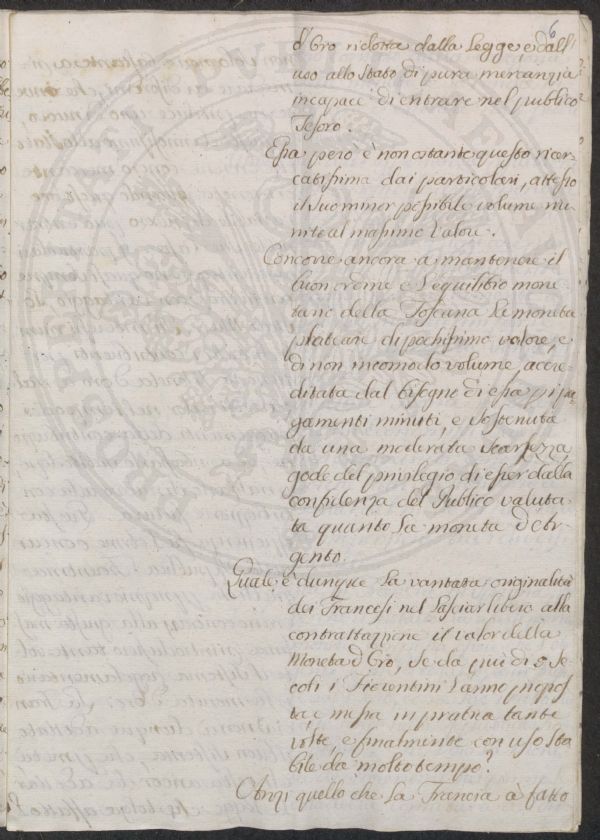 6
d'Oro ridotta dalla Legge, e dall'
uso allo stato di pura mercanzia
incapace di entrare nel pubblico
Tesoro.
Essa però è nonostante questo ricer-
catissima dai particolari, atteso
il suo minor possibile volume u-
nite al massimo Valore.
Concorre ancora a mantenere il
buon ordine e l'equilibrio mone-
tario della Toscana la moneta
plateale di pochissimo valore, e
di non incomodo volume, accre-
ditata dal bisogno di essa pei pa-
gamenti minuti, e sostenuta
da una moderata scarsezza
gode del privilegio di esser dalla
confidenza del Publico valuta-
ta quanto la moneta d'Ar-
gento.
Quale è dunque la vantata originalità
dei Francesi nel lasciar libero alla
contrattazione il valor della
Moneta d'Oro, se da più di 5 se-
coli i Fiorentini l'anno propos-
ta, e messa in pratica tante
volte, e finalmente con uso sta-
bile da molto tempo?
Anzi quello che la Francia à fatto